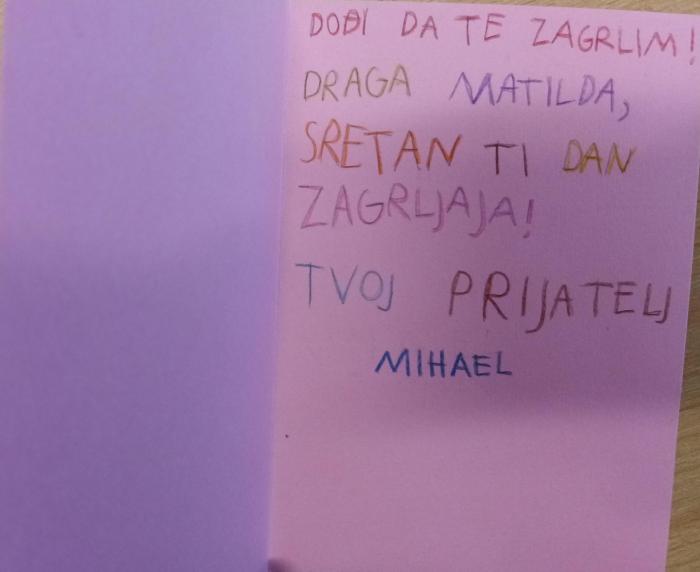 DOĐI DA TE ZAGRLIM!
DRAGA MATILDA,
SRETAN TI DAN
ZAGRLJAJA!
TVOJ PRIJATELJ
MIHAEL